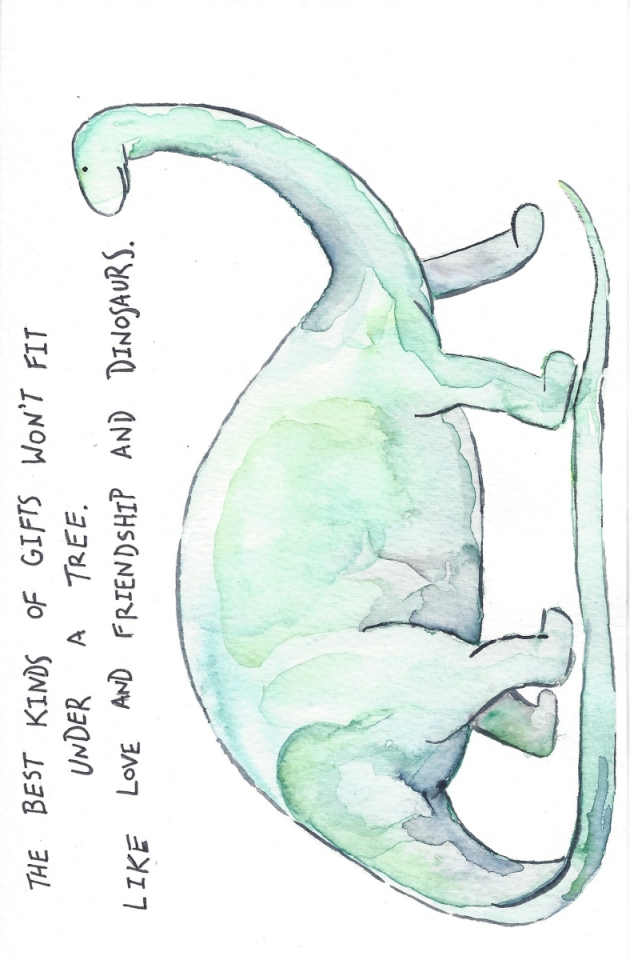 THE BEST KINDS OF GIFTS WON'T FIT
UNDER A TREE.
LIKE LOVE AND FRIENDSHIP AND DINOSAURS.